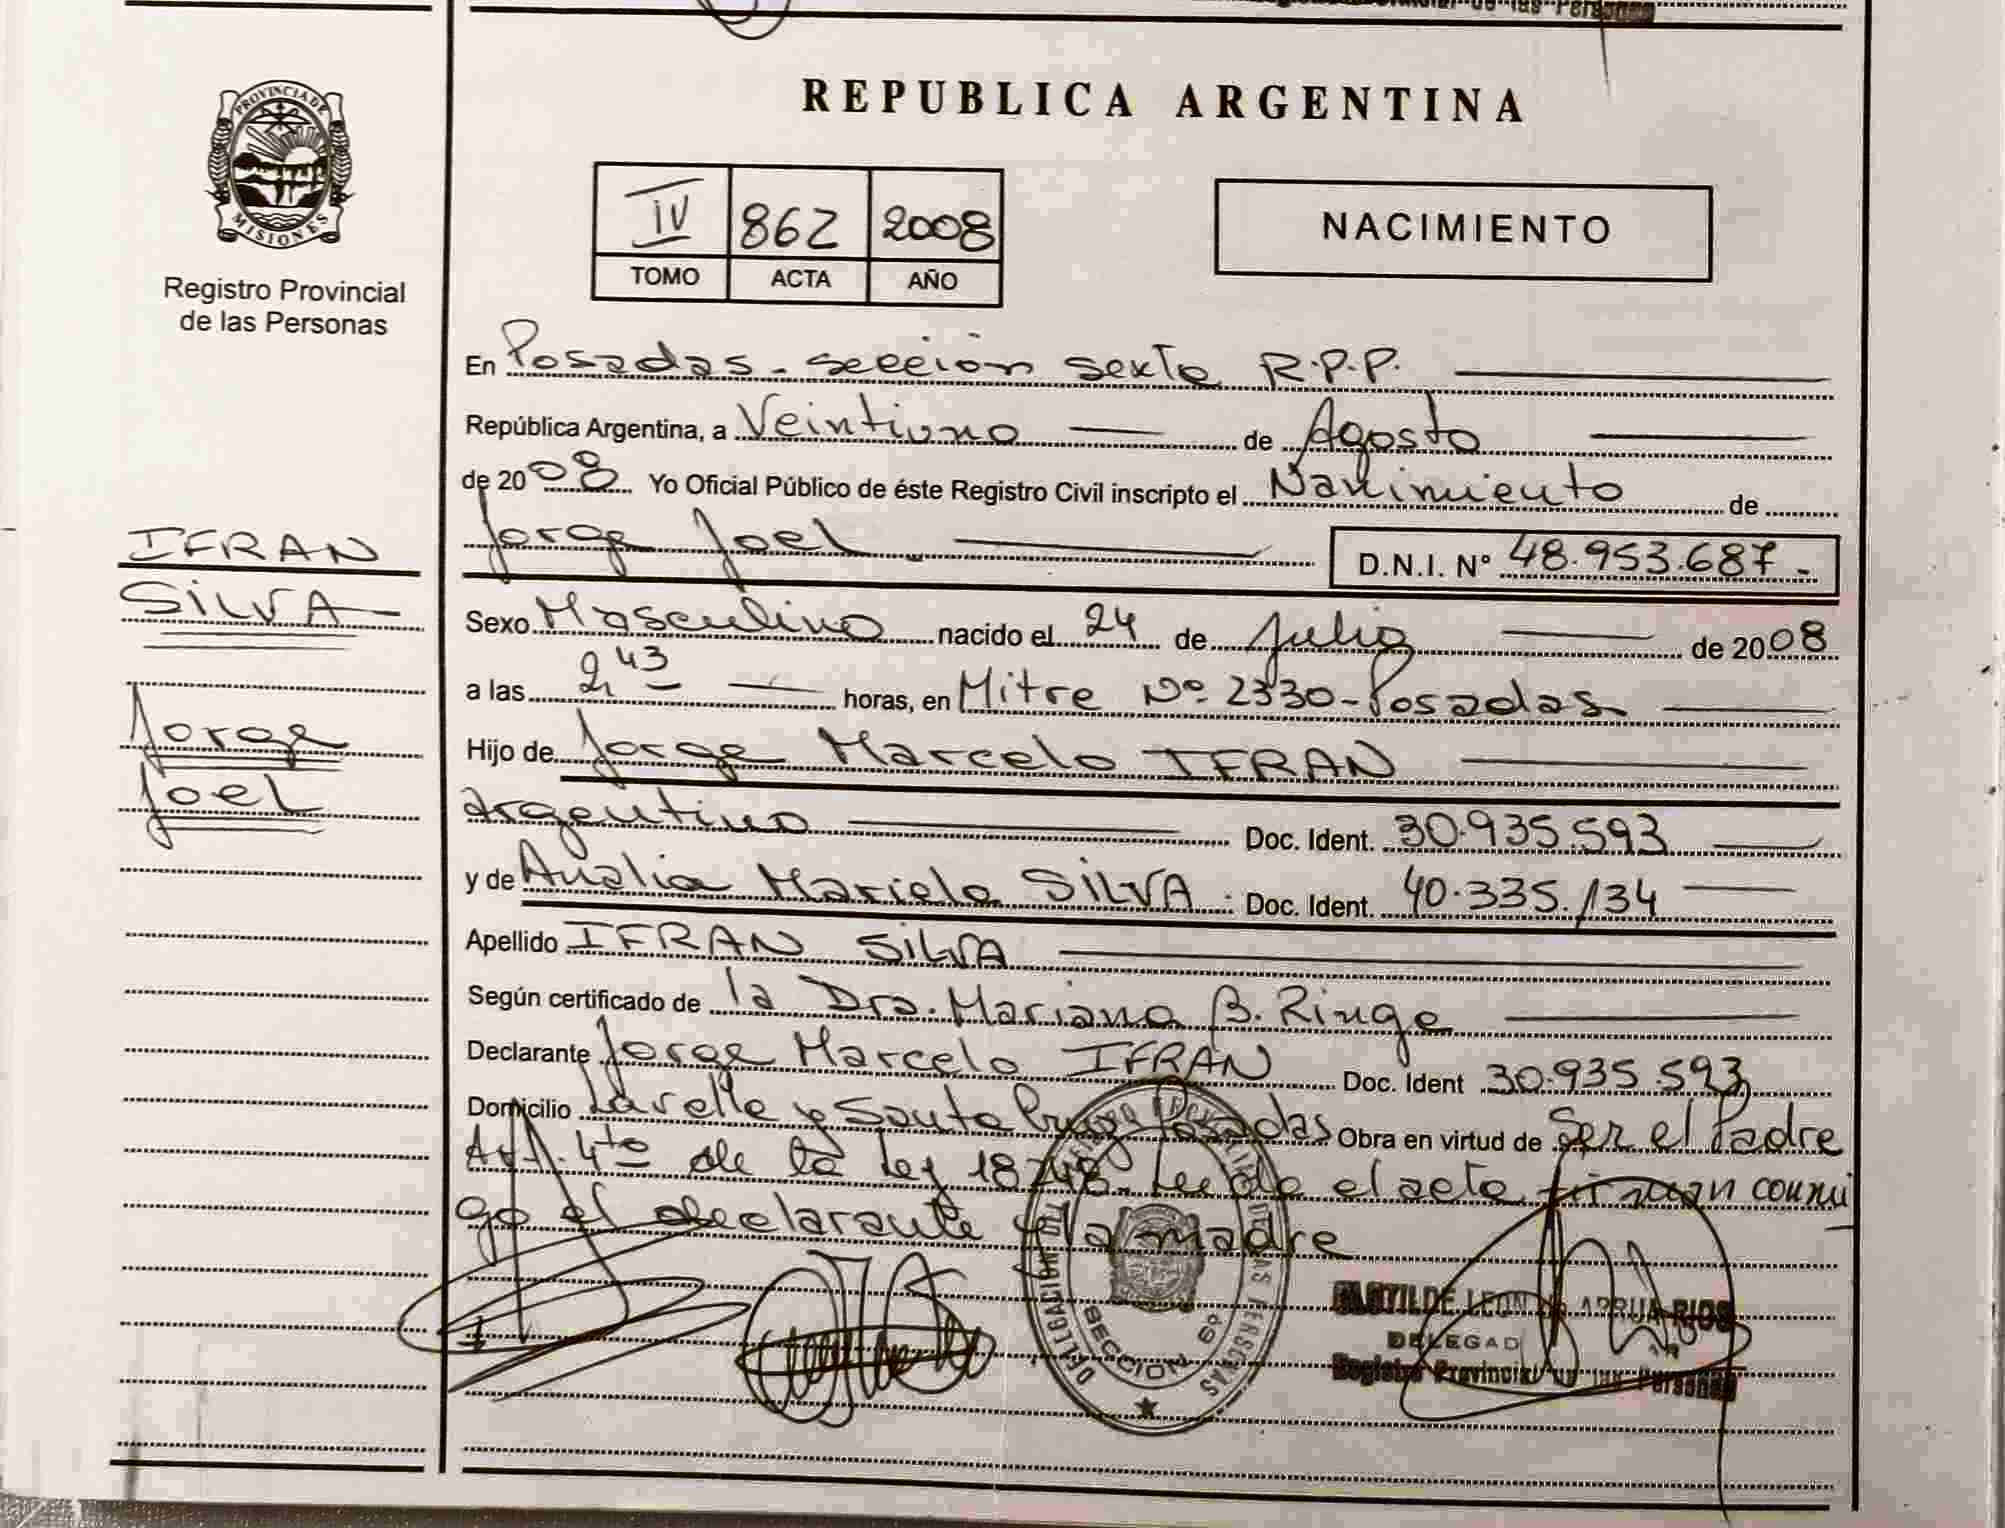 de las Persona
PROVINCIA DE
MISIONES
Registro Provincial
de las Personas
REPUBLICA ARGENTINA
IV 862 2008
TOMO ACTA AÑO
NACIMIENTO
En Posadas - sección sexta R.P.P.
República Argentina, a Veintiuno de Agosto
de 2008 Yo Oficial Público de éste Registro Civil inscripto el Nacimiento de
Jorge Joel D.N.I. Nº 48.953.687-
IFRAN
SILVA
Jorge
Joel
Sexo Masculino nacido el 24 de Julio de 2008
a las 2 43 horas, en Mitre Nº 2330 - Posadas
Hijo de Jorge Marcelo IFRAN
argentino Doc. Ident. 30.935.593
y de Analia Mariela SILVA. Doc. Ident. 40.335.134
Apellido IFRAN SILVA
Según certificado de la Dra. Mariana B. Ringe
Declarante Jorge Marcelo IFRAN Doc. Ident 30.935.593
Domicilio Lavalle y Santa Cruz Posadas Obra en virtud de Ser el Padre
Art. 4to de la Ley 18248. Leida el acta firman conmi
go el declarante y la madre
DELEGACION
DE LAS PERSONAS
SECCION 6º
CLOTILDE LEON ARRUA RIOS
DELEGAD
Registro Provincial de las Personas